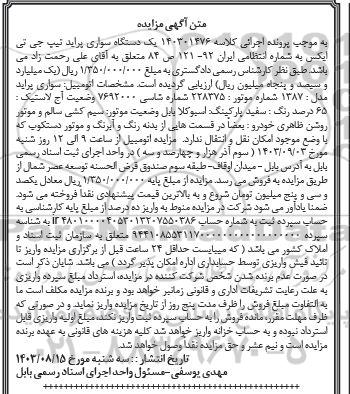 متن آگهی مزایده
به موجب پرونده اجرائی کلاسه ۱۴۰۳۰۱۴۷۶ یک دستگاه سواری پراید تیپ جی تی
ایکس به شماره انتظامی ایران ۹۲- ۱۲۱ ص ۸۴ متعلق به آقای علی رحمت زاد می
باشد. طبق نظر کارشناس رسمی دادگستری به مبلغ ۱/۳۵۰/۰۰۰/۰۰۰ ریال (یک میلیارد
و سیصد و پنجاه میلیون ریال) ارزیابی گردیده است. مشخصات اتومبیل: سواری پراید
مدل : ۱۳۸۷ شماره موتور : ۲۲۸۳۷۵ شماره شاسی ۷۶۹۲۰۰۰ وضعیت آج لاستیک :
۶۵ درصد رنگ : سفید پارکینگ: اسبوکلا بابل وضعیت موتور: سیم کشی سالم و موتور
روشن ظاهری خودرو : بعضا در قسمت هایی از بدنه رنگ و آبرنگ و موتور دستکوب که
با وضع موجود امکان نقل و انتقال ندارد. مزایده اتومبیل از ساعت ۹ الی ۱۲ روز شنبه
مورخ ۱۴۰۳/۰۹/۰۳ ( سوم آذر هزار و چهارصد و سه ) در واحد اجرای ثبت اسناد رسمی
بابل به آدرس بابل - میدان اوقاف- طبقه سوم صندوق قرض الحسنه توسعه عصر شمال از
طریق مزایده به فروش می رسد. مزایده از مبلغ پایه ۱/۳۵۰/۰۰۰/۰۰۰ ریال معادل یکصد
و سی و پنج میلیون تومان شروع و به بالاترین قیمت پیشنهادی نقدا فروخته می شود.
ضمنا یادآور می شود شرکت در مزایده منوط به واریز ده درصد از مبلغ پایه کارشناسی به
حساب سپرده ثبت به شماره حساب IR ۴۸۰۱۰۰۰۰۴۰۵۳۰۱۳۲۰۷۵۵۰۳۸۶ به شناسه
سپرده متعلق به سازمان ثبت اسناد و
املاک کشور می باشد ( که میبایست حداقل ۲۴ ساعت قبل از برگزاری مزایده واریز تا
تائید فیش واریزی توسط حسابداری اداره امکان پذیر گردد ) می باشد. شایان ذکر است
در صورت عدم برنده شدن شخص شرکت کننده در مزایده، استرداد مبلغ سپرده واریزی
به علت رعایت تشریفات اداری و قانونی زمانبر خواهد بود و برنده مزایده مکلف است ما
به التفاوت مبلغ فروش را ظرف مدت پنج روز از تاریخ مزایده واریز نماید و در صورتی که
ظرف مهلت مقرر، مانده فروش را به حساب سپرده ثبت واریز نکند، مبلغ اولیه واریزی قابل
استرداد نبوده و به حساب خزانه واریز خواهد شد کلیه هزینه های قانونی به عهده برنده
مزایده است و نیم عشر و حق مزایده نقدا وصول خواهد شد.
تاریخ انتشار : : سه شنبه مورخ ۱۴۰۳/۰۸/۱۵
مهدی یوسفی-مسئول واحد اجرای اسناد رسمی بابل